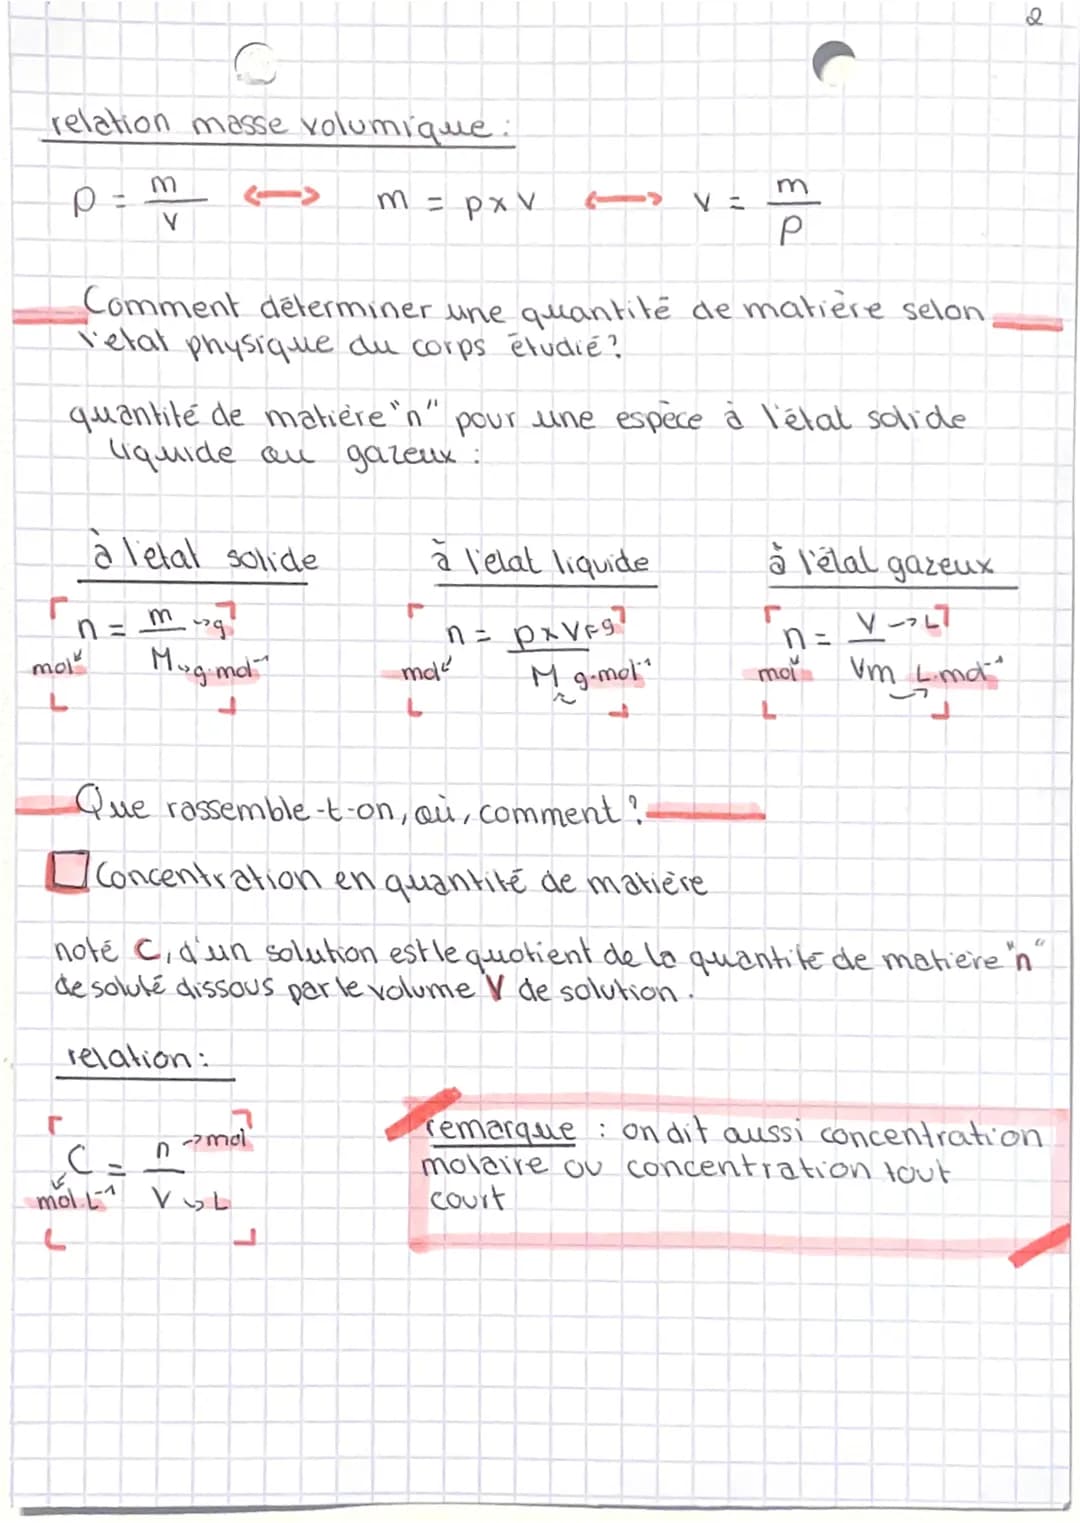 2
relation masse volumique :
ρ = m/V ⟷ m = ρ x V ⟷ V = m/ρ
Comment déterminer une quantité de matière selon
l'etat physique du corps étudié ?
quantité de matière "n" pour une espèce à l'état solide
liquide ou gazeux :
à l'etat solide
à l'etat liquide
à l'état gazeux
n = m → g
mol M → g.mol⁻¹
n = ρ x V g
mol M g.mol⁻¹
n = V → L
mol Vm L.mol⁻¹
Que rassemble-t-on, où, comment ?
Concentration en quantité de matière
noté C, d'un solution est le quotient de la quantité de matière "n"
de soluté dissous par le volume V de solution.
relation :
C = n → mol
mol.L⁻¹ V → L
remarque : on dit aussi concentration
molaire ou concentration tout
court